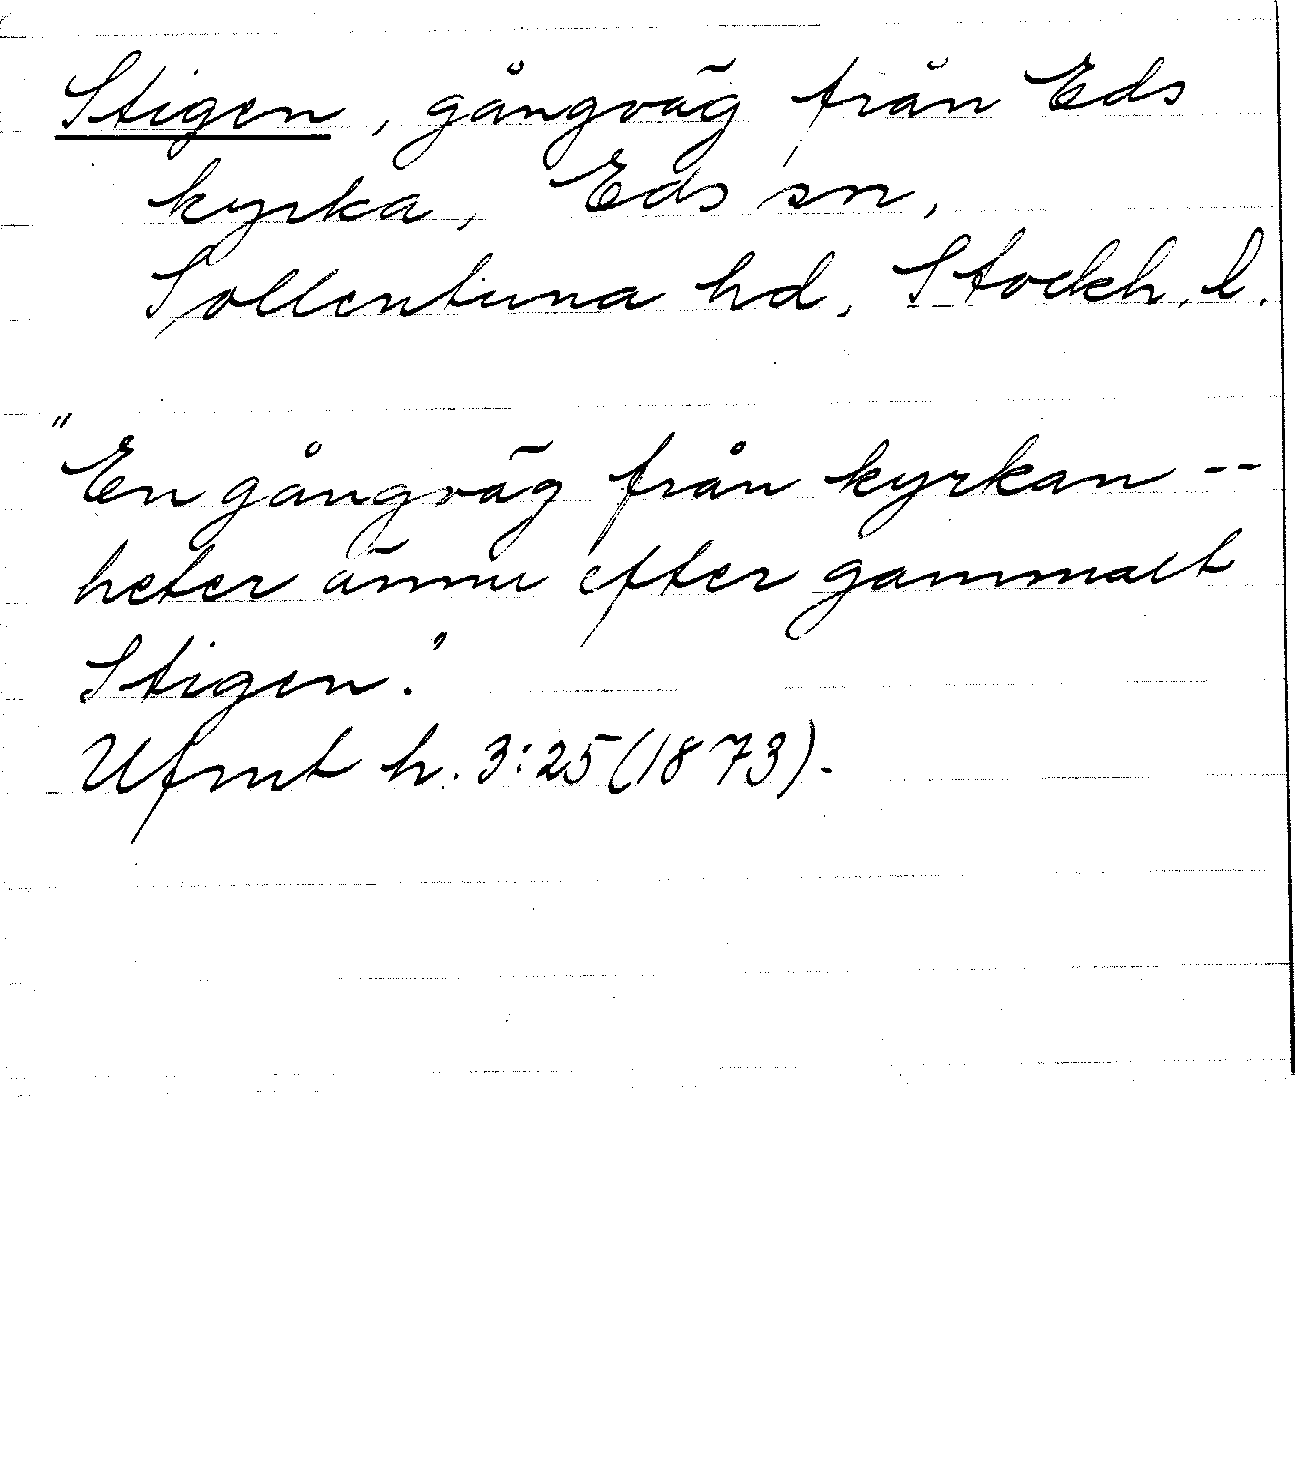 Stigen, gångväg från Eds
kyrka, Eds sn,
Sollentuna hd, Stockh. l.
"En gångväg från kyrkan --
heter ännu efter gammalt
Stigen."
Ufmt h. 3:25 (1873).